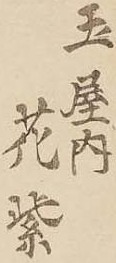 玉屋内
花紫